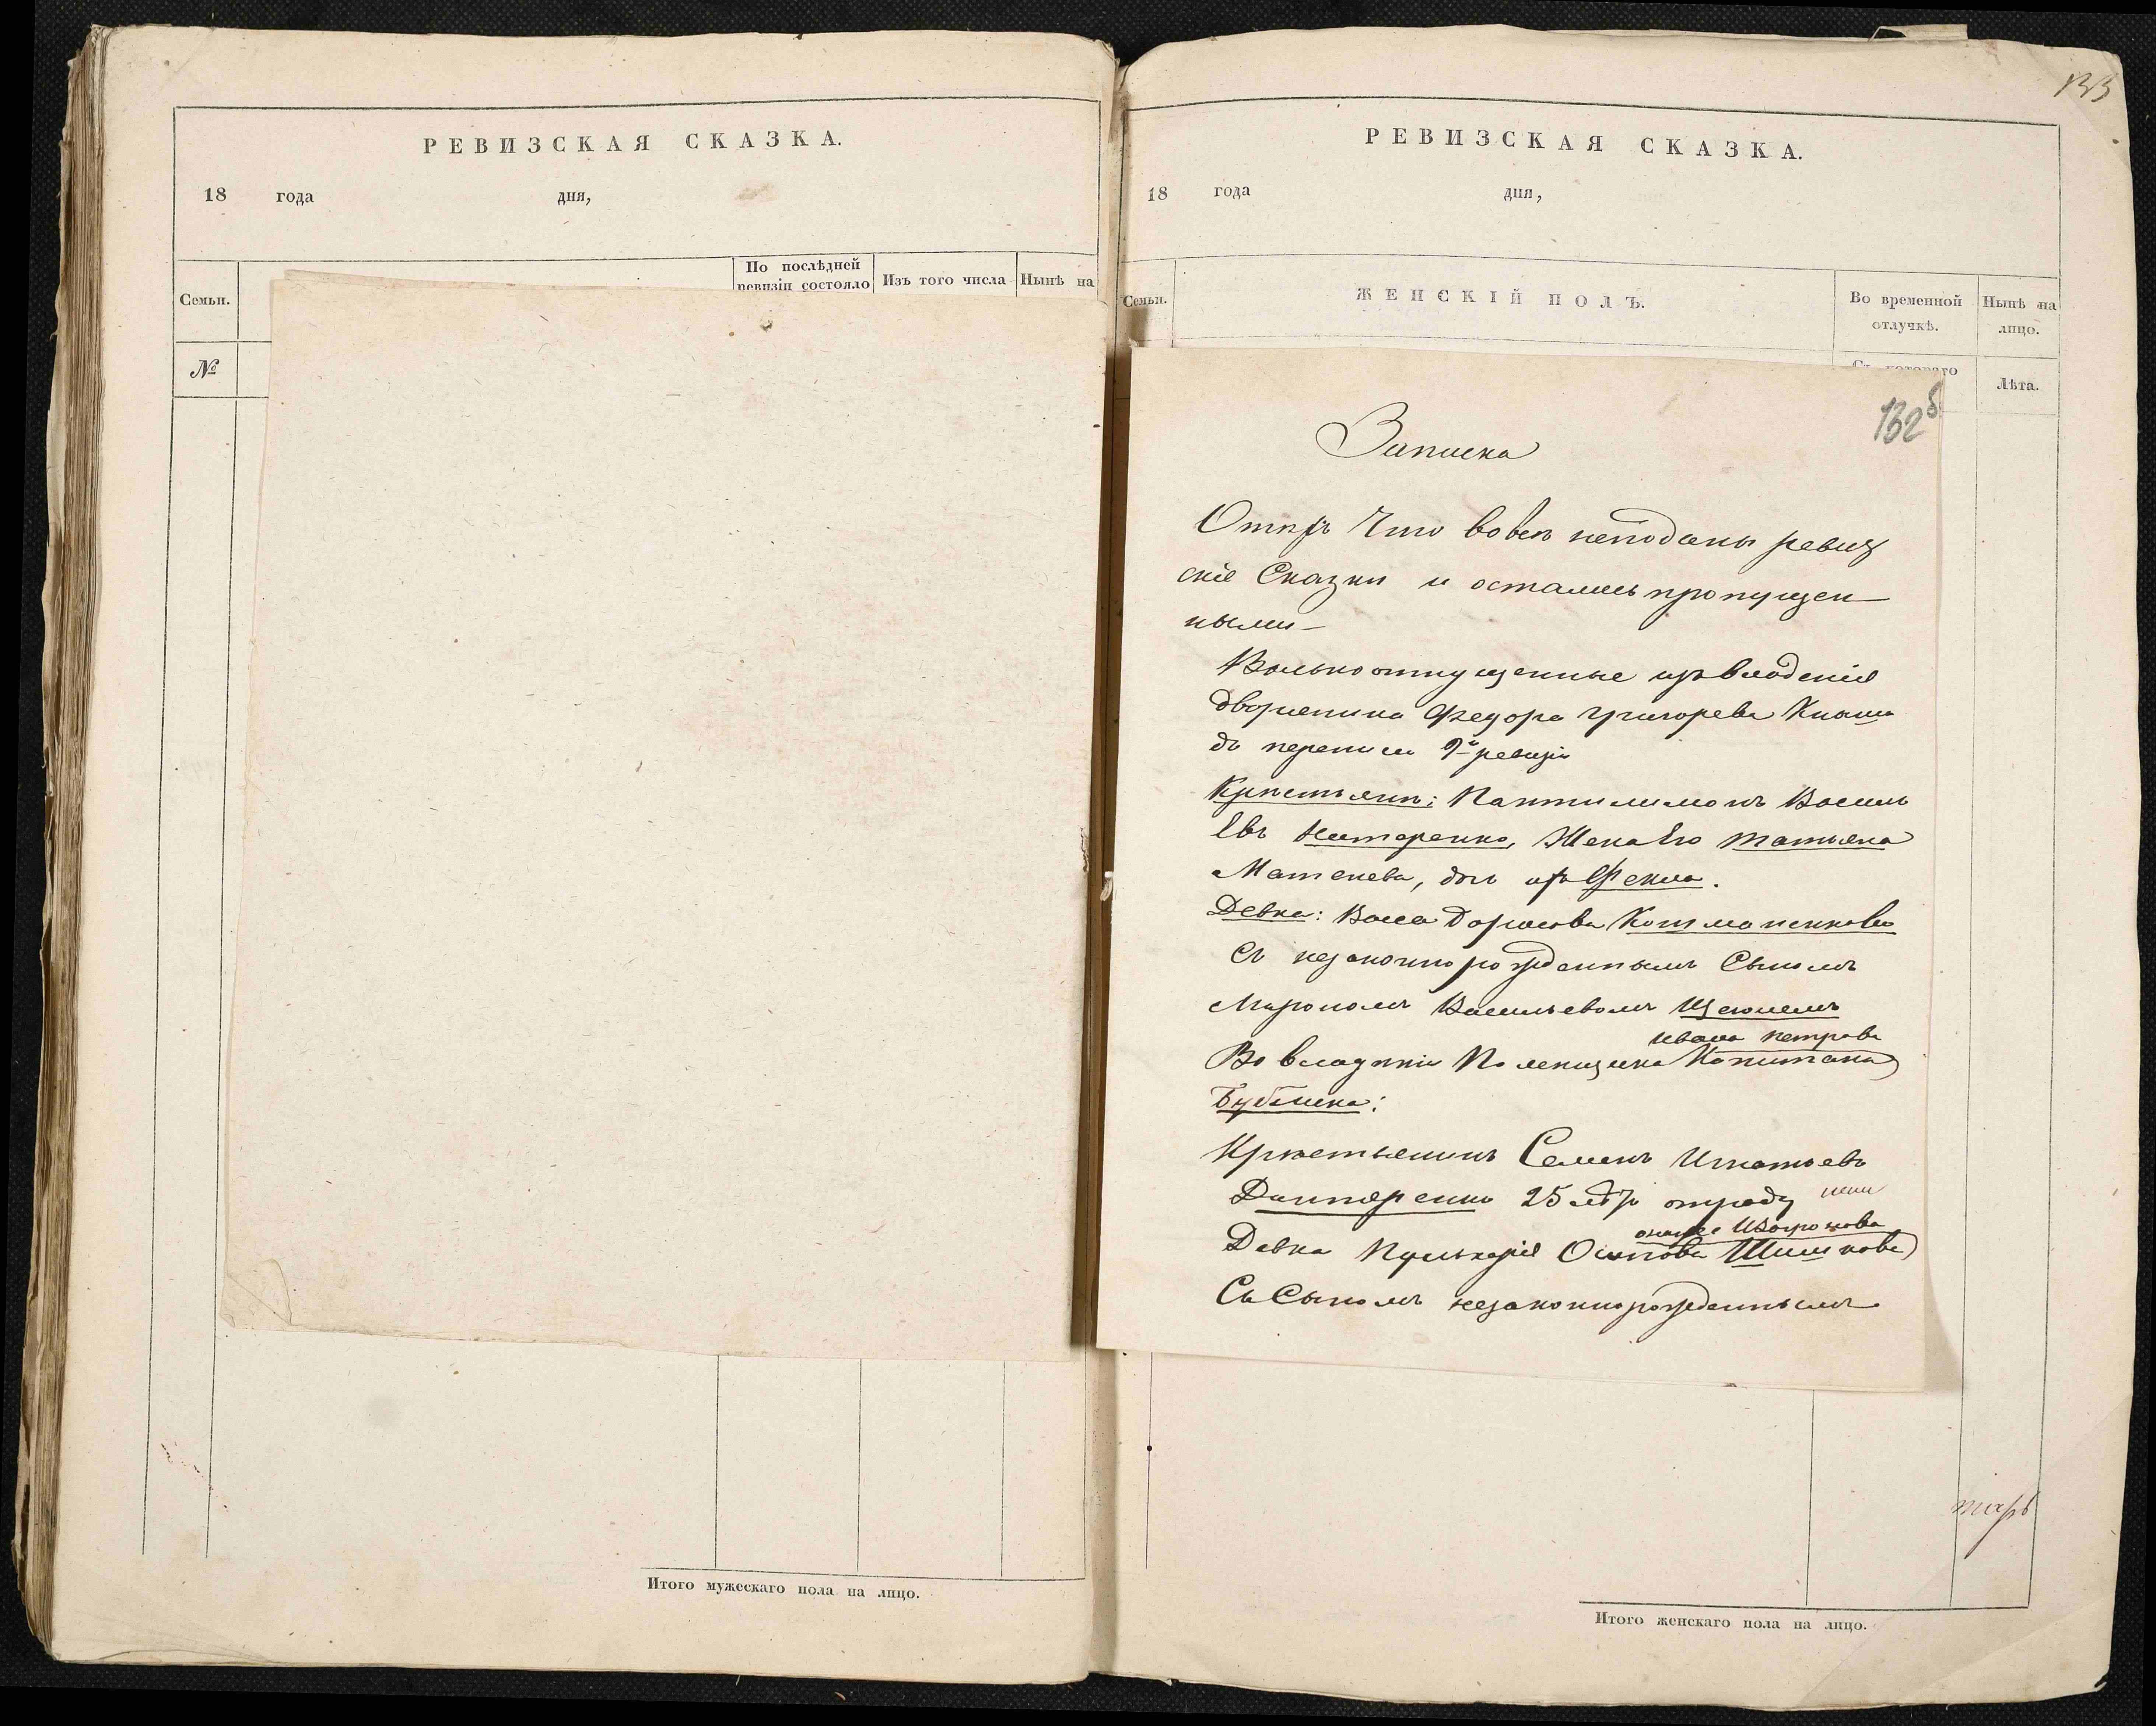 РЕВИЗСКАЯ СКАЗКА.
18 года дня,
Семьи.
По послѣдней ревизіи состояло
Изъ того числа
Нынѣ на
№
Итого мужескаго пола на лицо.
133
РЕВИЗСКАЯ СКАЗКА.
18 года дня,
Семьи.
ЖЕНСКІЙ ПОЛЪ.
Во временной отлучкѣ.
Нынѣ на лицо.
Съ котораго
Лѣта.
132 б
Записка
Что вовсѣ неподаны ревиз
скіе Сказки и остались пропущен
ными
Вольноотпущенные изъ владенія
дворянина Федора Григорева
до переписи 9й ревизіи
Крѣстьянъ: Пантилимонъ Василь
евъ Нестеренко, Жена Его татьяна
Матвева, дочь ихъ Фекла.
Девка: Васса
Съ незаконно рожденнымъ Сыномъ
Мирономъ Васильевомъ
ивана петрова
Во владѣніи Помещика Капитана
Крѣстьянинъ Семенъ Игнатьевъ
25 лѣтъ отроду
онаже
Девка Пулькерія Осипова Шишкова
Съ Сыномъ незаконнорожденнымъ
Итого женскаго пола на лицо.